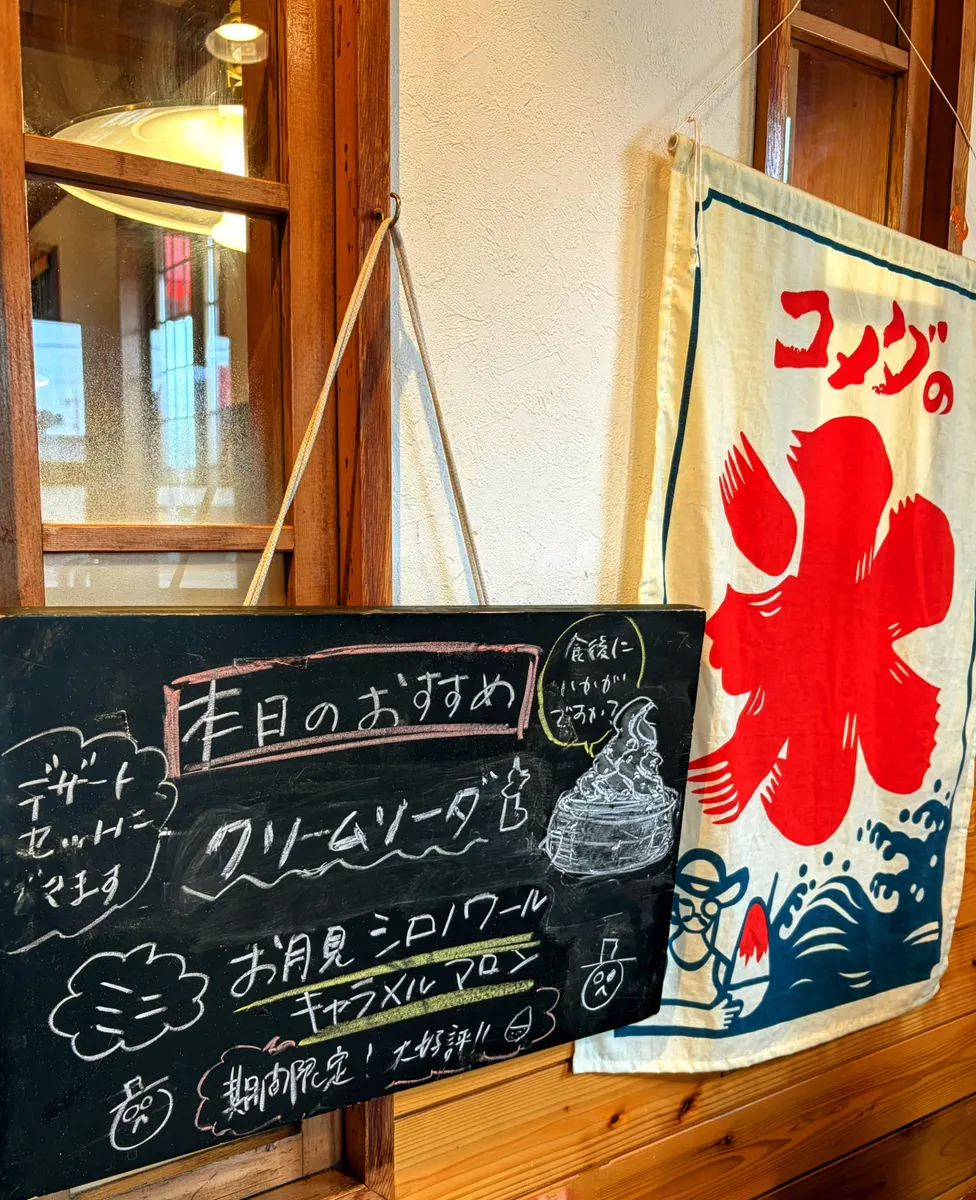 コメダの
氷
本日のおすすめ
食後に
いかがが
ですか?
デザート
セットに
できます
クリームソーダ
お月見 シロノワール
キャラメル マロン
ミニ
期間限定! 大好評!!